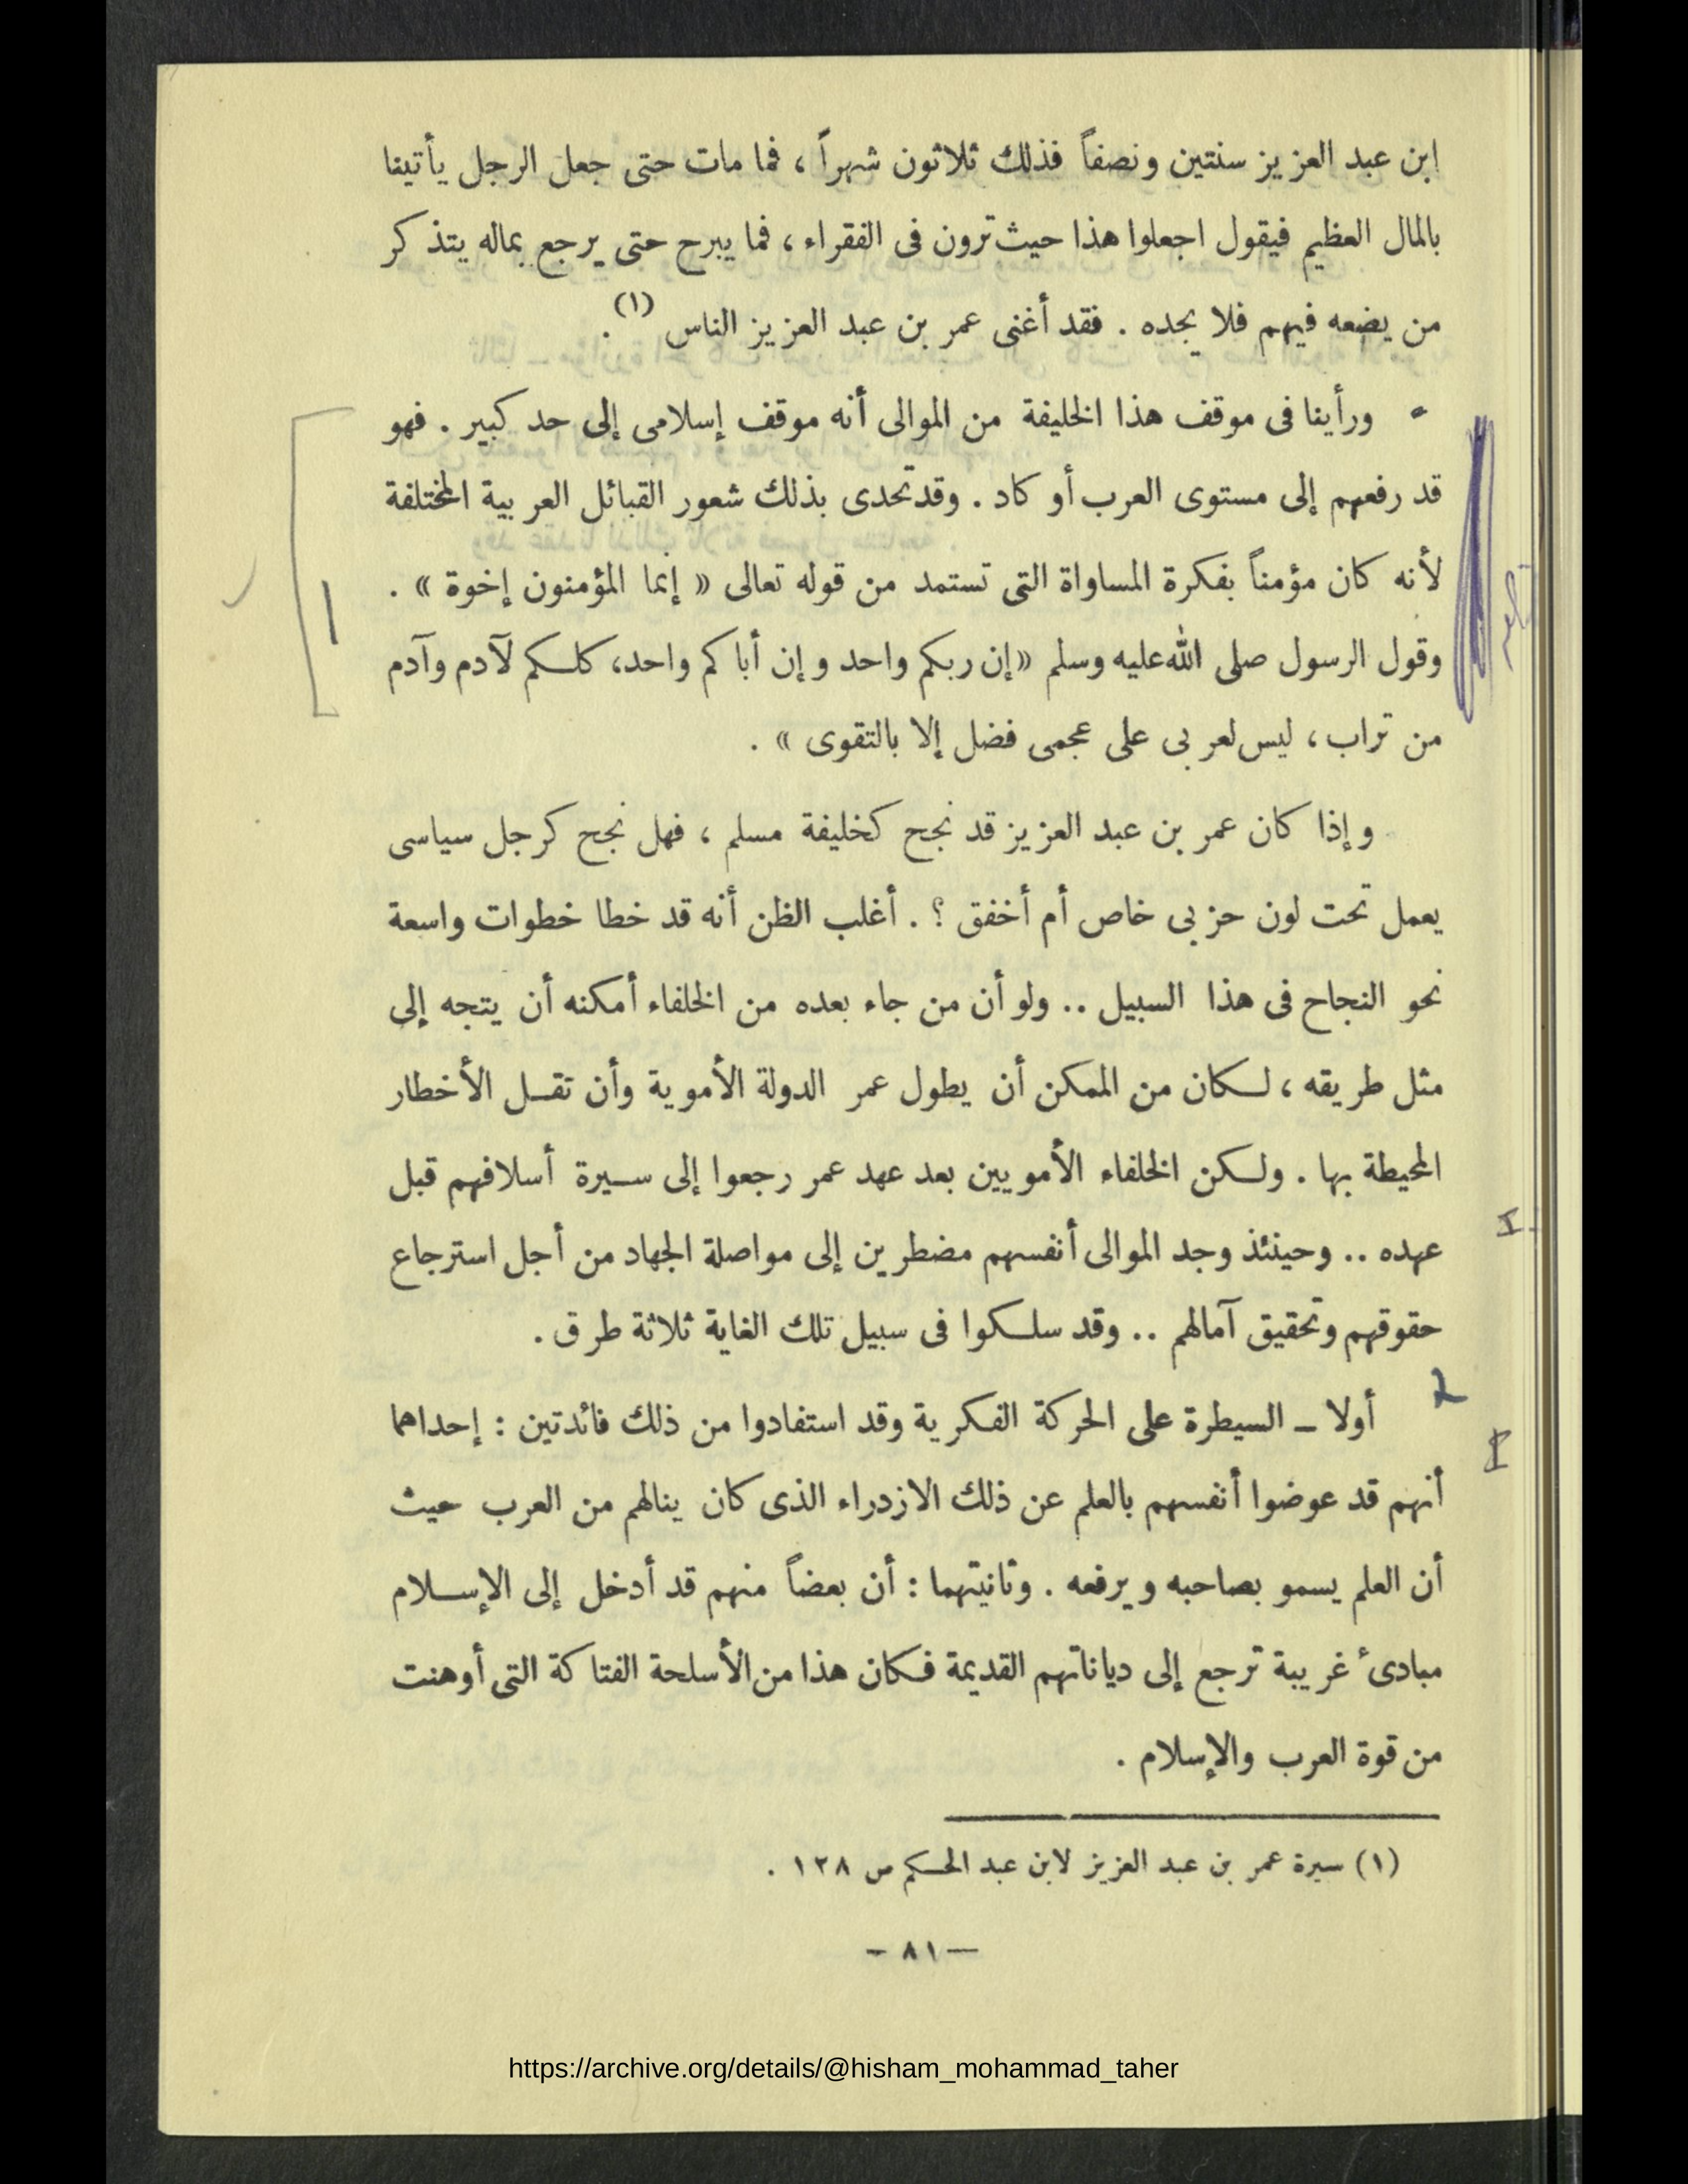 ابن عبد العزيز سنتين ونصفاً فذلك ثلاثون شهراً ، فما مات حتى جعل الرجل يأتينا
بالمال العظيم فيقول اجعلوا هذا حيث ترون فى الفقراء ، فما يبرح حتى يرجع بماله يتذكر
من يضعه فيهم فلا يجده . فقد أغنى عمر بن عبد العزيز الناس (١).
ورأينا فى موقف هذا الخليفة من الموالى أنه موقف إسلامى إلى حد كبير . فهو
قد رفعهم إلى مستوى العرب أو كاد . وقد تحدى بذلك شعور القبائل العربية المختلفة
لأنه كان مؤمناً بفكرة المساواة التى تستمد من قوله تعالى « إنما المؤمنون إخوة » .
وقول الرسول صلى الله عليه وسلم « إن ربكم واحد وإن أباكم واحد، كلكم لآدم وآدم
من تراب ، ليس لعربى على عجمى فضل إلا بالتقوى » .
وإذا كان عمر بن عبد العزيز قد نجح كخليفة مسلم ، فهل نجح كرجل سياسى
يعمل تحت لون حزبى خاص أم أخفق ؟ . أغلب الظن أنه قد خطا خطوات واسعة
نحو النجاح فى هذا السبيل .. ولو أن من جاء بعده من الخلفاء أمكنه أن يتجه إلى
مثل طريقه ، لكان من الممكن أن يطول عمر الدولة الأموية وأن تقل الأخطار
المحيطة بها . ولكن الخلفاء الأمويين بعد عهد عمر رجعوا إلى سيرة أسلافهم قبل
عهده .. وحينئذ وجد الموالى أنفسهم مضطرين إلى مواصلة الجهاد من أجل استرجاع
حقوقهم وتحقيق آمالهم .. وقد سلكوا فى سبيل تلك الغاية ثلاثة طرق .
أولا – السيطرة على الحركة الفكرية وقد استفادوا من ذلك فائدتين : إحداهما
أنهم قد عوضوا أنفسهم بالعلم عن ذلك الازدراء الذى كان ينالهم من العرب حيث
أن العلم يسمو بصاحبه ويرفعه . وثانيتهما : أن بعضاً منهم قد أدخل إلى الإسلام
مبادئ غريبة ترجع إلى دياناتهم القديمة فكان هذا من الأسلحة الفتاكة التى أوهنت
من قوة العرب والإسلام .
(١) سيرة عمر بن عبد العزيز لابن عبد الحكم ص ١٢٨ .
— ٨١ -
https://archive.org/details/@hisham_mohammad_taher